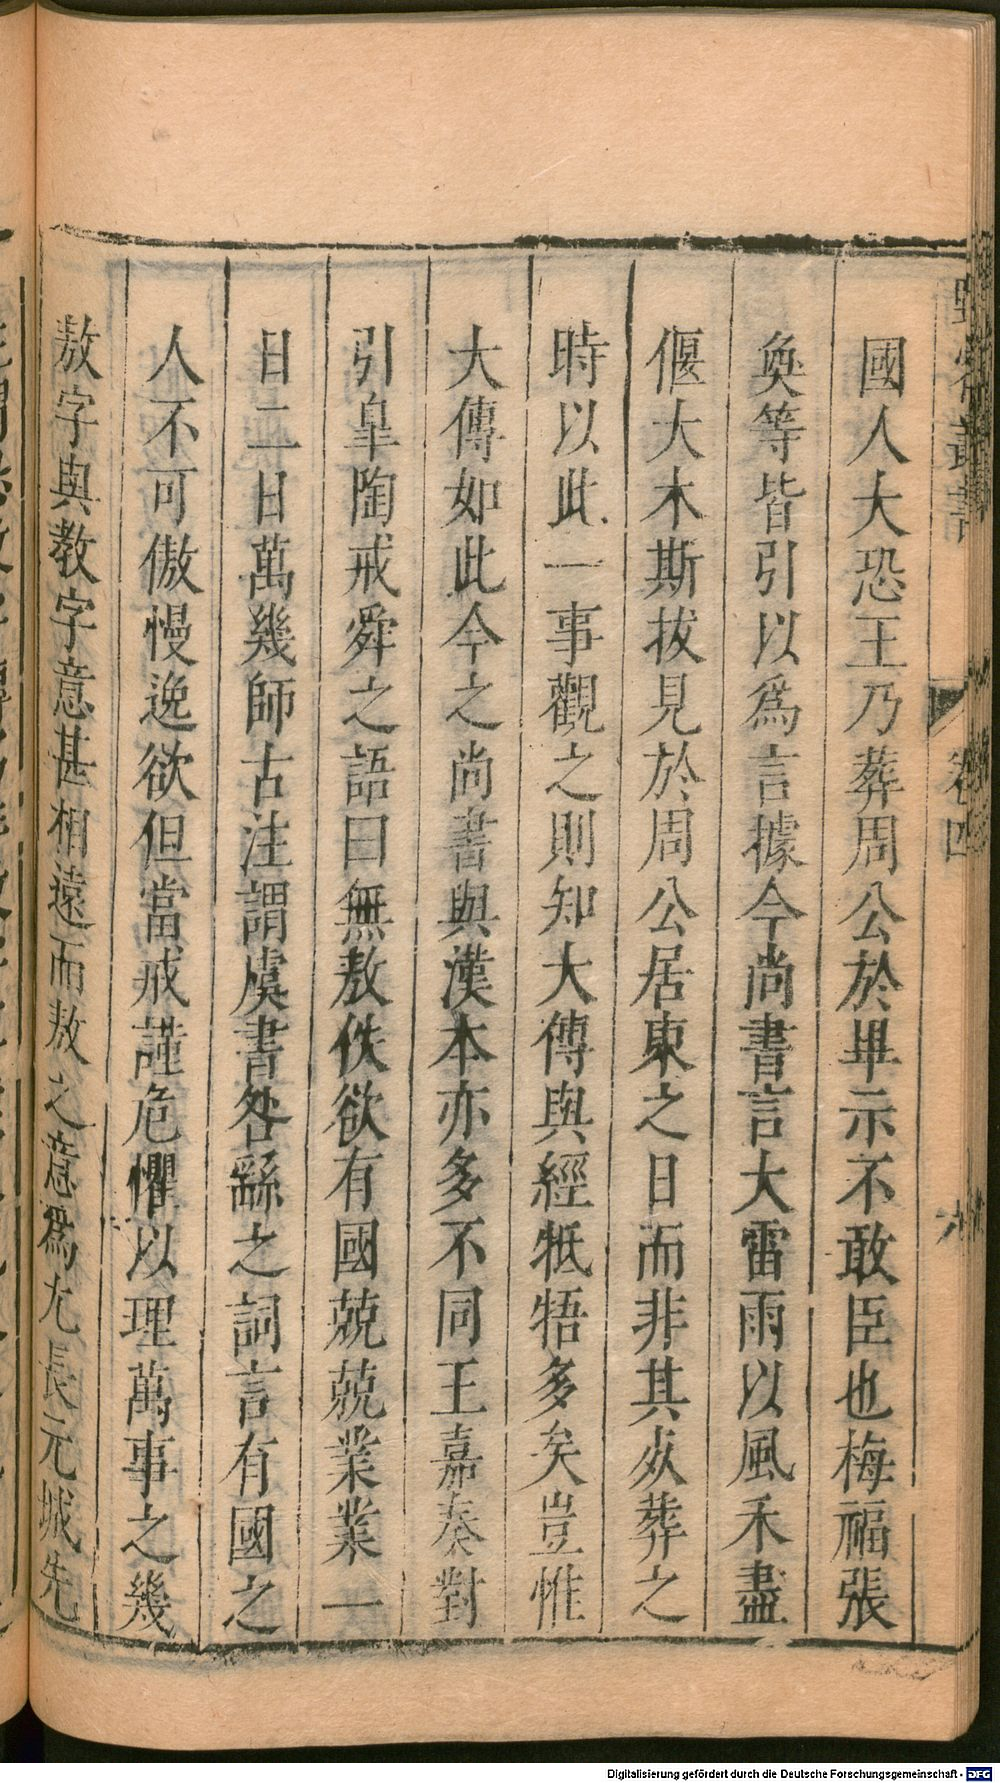 國人大恐王乃葬周公於畢示不敢臣也梅福張
奐等皆引以爲言據今尚書言大雷雨以風禾盡
偃大木斯拔見於周公居東之日而非其死葬之
時以此一事觀之則知大傳與經牴牾多矣豈惟
大傳如此今之尚書與漢本亦多不同王嘉奏對
引臯陶戒舜之語曰無敖佚欲有國兢兢業業一
日二日萬幾師古注謂虞書咎繇之詞言有國之
人不可傲慢逸欲但當戒謹危懼以理萬事之幾
敖字與教字意甚相遠而敖之意爲尤長元城先
卷四
六
Digitalisierung gefördert durch die Deutsche Forschungsgemeinschaft - DFG